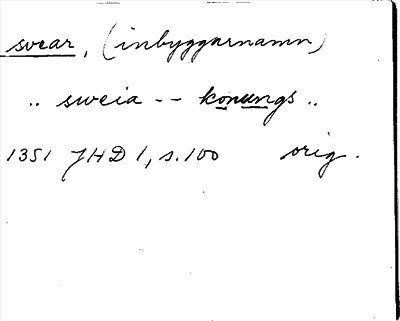 svear, (inbyggarnamn)
.. sweia -- konungs ..
1351 JHD 1, s.100 orig.